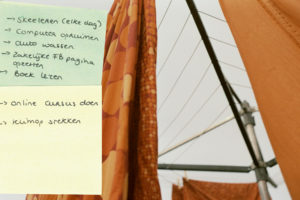 -> Skeeleren (elke dag)
-> Computer opruimen
-> Auto wassen
-> Zakelijke FB pagina
opzetten
-> Boek lezen
-> Online cursus doen
-> Klimop stekken